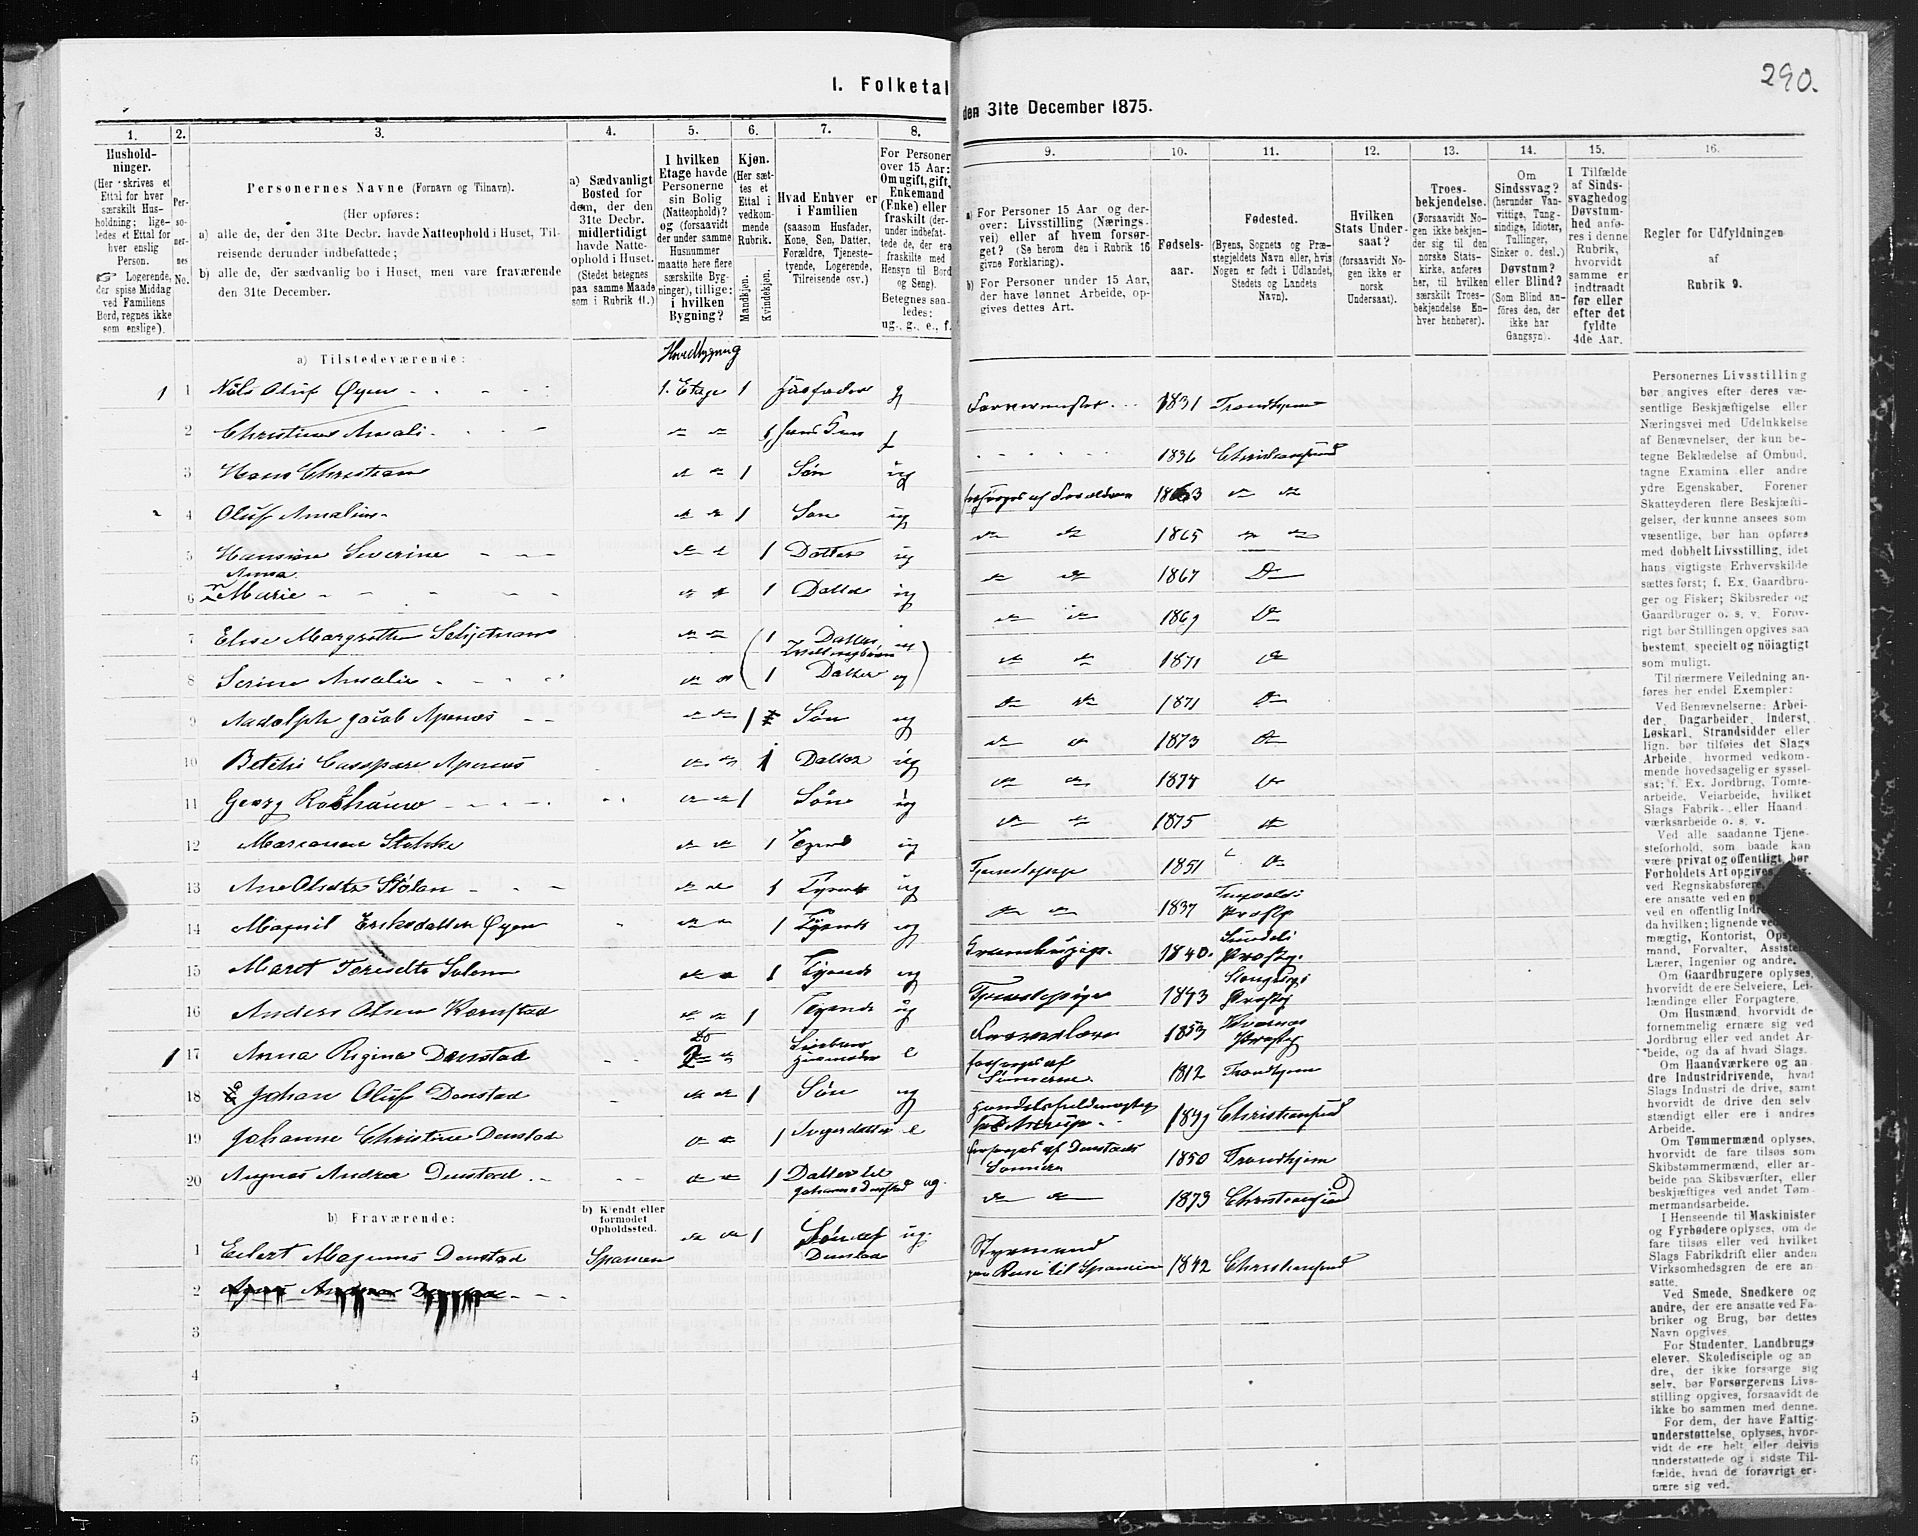 290.
I. Folketal
den 31te December 1875.
1. 2. 3. 4. 5. 6. 7. 8.
9. 10. 11. 12. 13. 14. 15. 16.
Hushold-
ninger.
(Her skrives et
Ettal for hver
særskilt Hus-
holdning; lige-
ledes et Ettal for
hver enslig
Person.
☞ Logerende,
der spise Middag
ved Familiens
Bord, regnes ikke
som enslige).
Per-
so-
ner-
nes
No.
Personernes Navne (Fornavn og Tilnavn).
(Her opføres:
a) alle de, der den 31te Decbr. havde Natteophold i Huset, Til-
reisende derunder indbefattede;
b) alle de, der sædvanlig bo i Huset, men vare fraværende
den 31te December.
a) Sædvanligt
Bosted for
dem, der den
31te Decbr.
midlertidigt
havde Natte-
ophold i Huset.
(Stedet betegnes
paa samme Maade
som i Rubrik 11.)
I hvilken
Etage havde
Personerne
sin Bolig
(Natteophold)?
og (forsaavidt
der under samme
Husnummer
maatte here flere
særskilte Byg-
ninger), tillige:
i hvilken
Bygning?
Kjøn.
(Her sæt-
tes et
Ettal i
vedkom-
mende
Rubrik.
Mandkjøn.
Kvindekjøn.
Hvad Enhver er
i Familien
(saasom Husfader,
Kone, Søn, Datter,
Forældre, Tjeneste-
tyende, Logerende,
Tilreisende osv.)
For Personer
over 15 Aar:
Om ugift, gift,
Enkemand
(Enke) eller
fraskilt (der-
under indbefat-
tede de, der ere
fraskilte med
Hensyn til Bord
og Seng).
Betegnes saa-
ledes:
ug., g., e., f.
a) For Personer 15 Aar og der-
over: Livsstilling (Nærings-
vei) eller af hvem forsør-
get? (Se herom den i Rubrik 16
givne Forklaring).
b) For Personer under 15 Aar,
der have lønnet Arbeide, op-
gives dettes Art.
Fødsels-
aar.
Fødested.
(Byens, Sognets og Præ-
stegjeldets Navn eller, hvis
Nogen er født i Udlandet,
Stedets og Landets
Navn).
Hvilken
Stats Under-
saat?
(forsaavidt No-
gen ikke er
norsk
Undersaat).
Troes-
bekjendelse.
(Forsaavidt No-
gen ikke bekjen-
der sig til den
norske Stats-
kirke, anføres
her, til hvilken
særskilt Troes-
bekjendelse En-
hver henhører).
Om
Sindssvag?
(herunder Van-
vittige, Tung-
sindige, Idioter,
Tullinger,
Sinker o. desl.)
Døvstum?
eller Blind?
(Som Blind an-
föres den, der
ikke har
Gangsyn).
I Tilfælde
af Sinds-
svaghed og
Døvstum-
hed anfø-
res i denne
Rubrik,
hvorvidt
samme er
indtraadt
før eller
efter det
fyldte
4de Aar.
Regler for Udfyldningen
af
Rubrik 9.
a) Tilstedeværende: Hovedbygning
1 1 Nils Oluf Øyen 1. Etage 1 Husfader g 1831 Trondhjem
2 Christiane Amali 1836 Christiansund
3 Hans Christian 1 Søn ug forsørges af Forældrene 1863
4 Oluf Amalius 1 Søn ug 1865
5 Hansine Severine 1 Datter ug 1867 Do
6 Anna Marie 1 Datter ug 1869 Do
7 Elise Margrethe 1 Datter Tvillingbørn ug 1871 Do
8 Serine Amalie 1 Datter ug 1871 Do
9 Aadolph Jacob Apenæs 1 Søn ug 1873 Do
10 Apenæs 1 Datter ug 1874 Do
11 Georg 1 Søn ug 1875
12 Marianne Stokke 1 Tyende ug Tjenestepige 1851 Do
13 Ane 1 Tyende ug 1837 Præstg
14 Eriksdatter Øyen 1 Tyende ug 1840. Sundals Præstg.
15 Maret Solem 1 Tyende ug Tjenestepige 1843 Præstg
16 Anders Olsen Kornstad 1 Tyende ug 1853 Præstg
1 17 Anna Regina Denstad 2 Husmoder e forsørges af Sønnerne 1812 Trondhjem
18 Johan Oluf Denstad 1 Søn ug 1849 Christiansund
19 Johanne Christine Denstad 1 e forsørges af Denstads Sønner 1850 Trondhjem
20 Agnes Andrea Denstad 1 Datter til Johanne Denstad ug. 1873 Christiansund
b) Fraværende:
b) Kjendt eller
formodet
Opholdssted.
1 Eilert Magnus Denstad Spanien 1 Søn af Denstad ug. Styrmand paa Reise til Spanien 1842 Christiansund
2
3
4
5
6
Personernes Livsstilling
bør angives efter deres væ-
sentlige Beskjæftigelse eller
Næringsvei med Udelukkelse
af Benævnelser, der kun be-
tegne Beklædelse af Ombud,
tagne Examina eller andre
ydre Egenskaber. Forener
Skatteyderen flere Beskjæfti-
gelser, der kunne ansees som
væsentlige, bør han opføres
med dobbelt Livsstilling, idet
hans vigtigste Erhvervskilde
sættes først; f. Ex. Gaardbru-
ger og Fisker; Skibsreder og
Gaardbruger o. s. v. Forøv-
rigt bør Stillingen opgives saa
bestemt, specielt og nöiagtigt
som muligt.
Til nærmere Veiledning an-
føres her endel Exempler:
Ved Benævnelserne: Arbei-
der, Dagarbeider, Inderst,
Løskarl, Strandsidder eller
lign. bør tilføies det Slags
Arbeide, hvormed vedkom-
mende hovedsagelig er syssel-
sat; f. Ex. Jordbrug, Tomte-
arbeide, Veiarbeide, hvilket
Slags Fabrik- eller Haand-
værksarbeide o. s. v.
Ved alle saadanne Tjene-
steforhold, som baade kan
være privat og offentligt, bør
Forholdets Art opgives,
ved Regnskabsførere,
ere ansatte ved en
ved en offentlig
da hvilken; lignende
mægtig, Kontorist,
mand, Forvalter,
Lærer, Ingeniør og andre.
Om Gaardbrugere oplyses,
hvorvidt de ere Selveiere, Lei-
lændinge eller Forpagtere.
Om Husmænd, hvorvidt de
fornemmelig ernære sig ved
Jordbrug eller ved andet Ar-
beide, og da af hvad Slags.
Om Haandværkere og an-
dre Industridrivende, hvad
Slags Industri de drive, samt
hvorvidt de drive den selv-
stændigt eller ere i andres
Arbeide.
Om Tømmermænd oplyses,
hvorvidt de fare tilsøs som
Skibstømmermænd, eller ar-
beide paa Skibsværfter, eller
beskjæftiges ved andet Tøm-
mermandsarbeide.
I Henseende til Maskinister
og Fyrbødere oplyses, om de
fare tilsøs eller ved hvilket
Slags Fabrikdrift eller anden
Virksomhedsgren de ere an-
satte.
Ved Smede, Snedkere og
andre, der ere ansatte ved Fa-
briker og Brug, bør dettes
Navn opgives.
For Studenter, Landbrugs-
elever, Skoledisciple og an-
dre, der ikke forsørge sig
selv, bør Forsørgerens Livs-
stilling opgives, forsaavidt de
ikke bo sammen med denne.
For dem, der have Fattig-
understøttelse, oplyses, hvor-
vidt de ere helt eller delvis
understøttede og i sidste Til-
fælde, hvad de forøvrigt er-
nære sig ved.